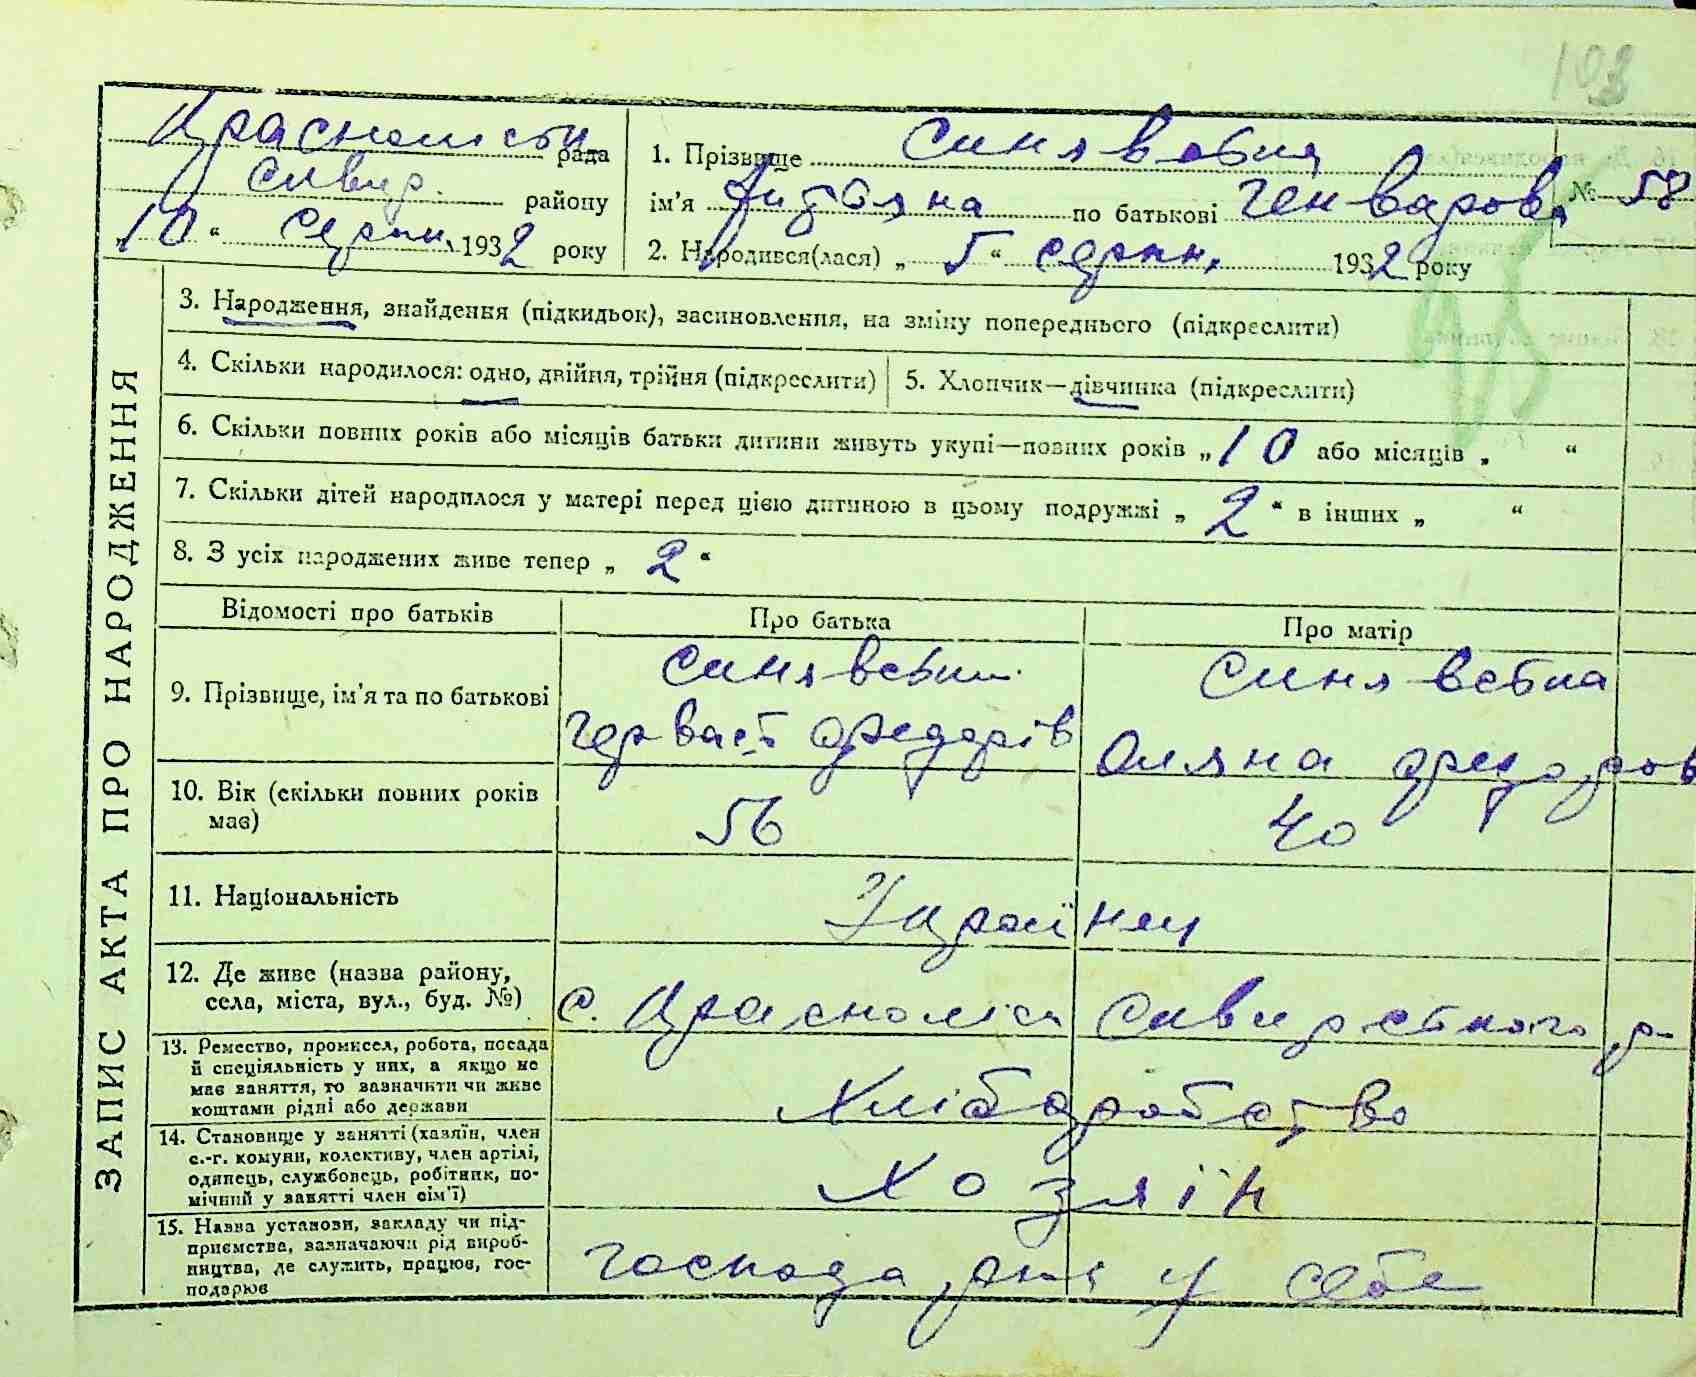 103
Красноліськ рада
Сквир. району
"10" серпн. 1932 року
1. Прізвище Синявська
ім'я по батькові Генварова
№ 58
2. Народився(лася) „5“ серпн. 1932 року
45
ЗАПИС АКТА ПРО НАРОДЖЕННЯ
3. Народження, знайдення (підкидьок), засиновлення, на зміну попереднього (підкреслити)
4. Скільки народилося: одно, двійня, трійня (підкреслити)
5. Хлопчик—дівчинка (підкреслити)
6. Скільки повних років або місяців батьки дитини живуть укупі—повних років „10 або місяців „ “
7. Скільки дітей народилося у матері перед цією дитиною в цьому подружжі „2“ в інших „ “
8. З усіх народжених живе тепер „2“
Відомості про батьків
Про батька
Про матір
9. Прізвище, ім'я та по батькові
Синявськи
Герваст Федорів
Синявська
Оляна Федоров
10. Вік (скільки повних років
має)
56
40
11. Національність
Українец
12. Де живе (назва району,
села, міста, вул., буд. №)
с. Красноліси Сквирського р
13. Ремество, промисел, робота, посада
й спеціяльність у них, а якщо не
має заняття, то зазначити чи живе
коштами рідні або держави
Хліборобство
14. Становище у занятті (хазяїн, член
с.-г. комуни, колективу, член артілі,
одинець, службовець, робітник, по-
мічний у занятті член сім'ї)
Хозяїн
15. Назва установи, закладу чи під-
приємства, зазначаючи рід вироб-
ництва, де служить, працює, гос-
подарює
господарює у себе